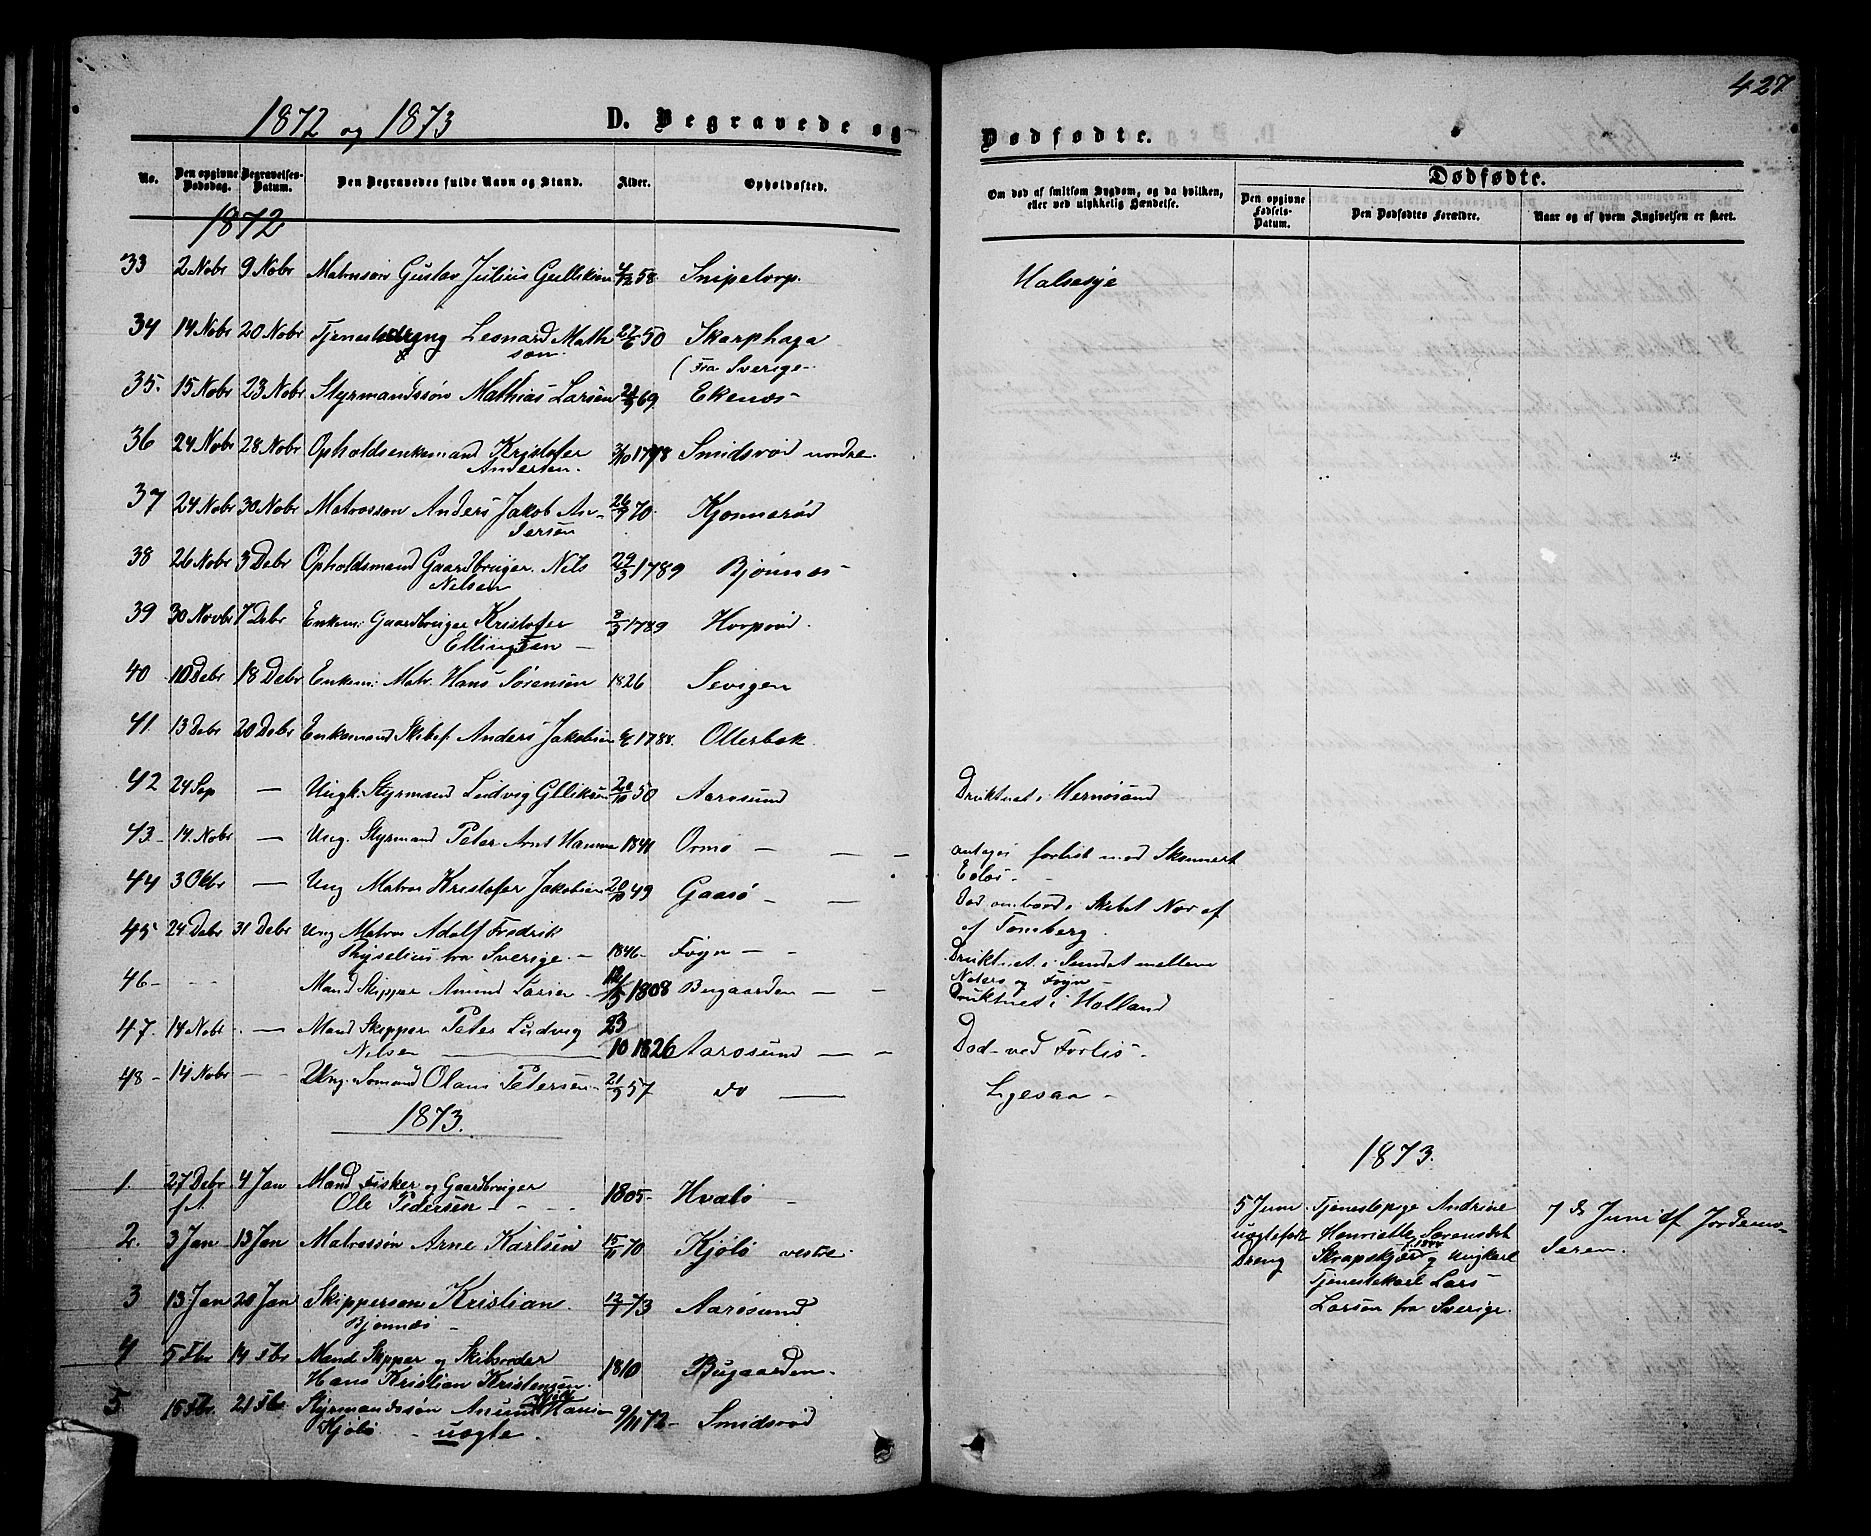 427
1872 og 1873 D. Begravede og Dødfødte.
No. Den opgivne Dødsdag. Begravelses-Datum. Den Begravedes fulde Navn og Stand. Alder. Opholdssted.
Om død af smitsom Sygdom, og da hvilken, eller ved ulykkelig Hændelse.
Dødfødte.
Den opgivne Fødsels-Datum. Den Dødfødtes Forældre. Naar og af hvem Angivelsen er skeet.
1872
33 2 Nobr 9 Nobr Matrosson Gustav Julius Gulliksen 58 Snipetorp. Halsesyge
34 14 Nobr 20 Nobr Tjenestedreng Leonard Math 27/6 50 Skarphaga
son. (Fra Sverige-
35. 15 Nobr 23 Nobr Styrmandssøn Mathias Larsen 69 Ekenes-
36 24 Nobr 28 Nobr Opholdsenkemand Kristofer Smidsrød nordre.
Andersen.
37 24 Nobr 30 Nobr Matrosson Anders Jakob An- 70 Kjonnerød
dersen
38 26 Nobr 3 Debr Opholdsmand Gaardbruger Nils 29/3 1789 Bjønnes-
Nilsen
39 30 Novbr 7 Debr Enkem: Gaardbruger Kristofer 8/3 1789
Ellingsen -
40 10 Debr 18 Debr Enkem: Matr. Hans Sørensen 1826 Sevigen
41. 13 Debr 20 Debr Enkemand Skibsf Anders Jakobsen 1788. Ollerbak
42 24 Sep - Ungk. Styrmand Ludvig Glliksen 20/10 50 Aarøsund Druktnet i Hernøsand
43.- 14. Nobr - Ung. Styrmand Peter Arnt Hansen 1841 Ormø - antages forlist med Skonnert
Eolos -
44 3 Oktr - Ung Matros Kristofer Jakobsen 20/10 49 Gaasø - Død ombord i Skibet Nor af
af Tønsberg.
45 24 Debr 31 Debr Ung Matros Adolf Fredrik
Thyselius fra Sverige. - 1846- Føyn - - Druktnet i Sundet mellem
Nøterø og Føyn -
46- - - - Mand Skipper Amund Larsen 1808 Bugaarden - Druktnet i Holland
47. 14 Nobr. - Mand Skipper Peter Ludvig 23
Nilsen 10 1826 Aarøsund - Død ved Forlis -
48- 14 Nobr - - Ung. Sømand Olaus Petersen- 21/9 57 do Ligesaa -
1873.
1. 27 Debr 4 Jan Mand Fisker og Gaardbruger
f.A. Ole Pedersen - 1805- Hvalø -
2. 3 Jan 13 Jan Matrossøn Arne Karlsen 70 Kjøbø vestre.
3 13 Jan 20 Jan Skippersøn Kristian 73 Aarøsund.
Bjønnes -
4 5 Fbr 14 Fbr Mand Skipper og Skibsreder 1810 Bugaarden-
Hans Kristian Kristensen.
5 15 Fbr 21 Fbr Styrmandssøn Anund Hansen 9/11 72- Smidsrød
Kjøbø - uægte.
1873.
5 Juni Tjenestepige Andrine 7 d Juni af Jordemo-
uægtefødt Henriette Sørensdat deren.
Dreng Skrapskjær f. 1844 og Ungkarl
Tjenestekarl Lars
Larsen fra Sverige.